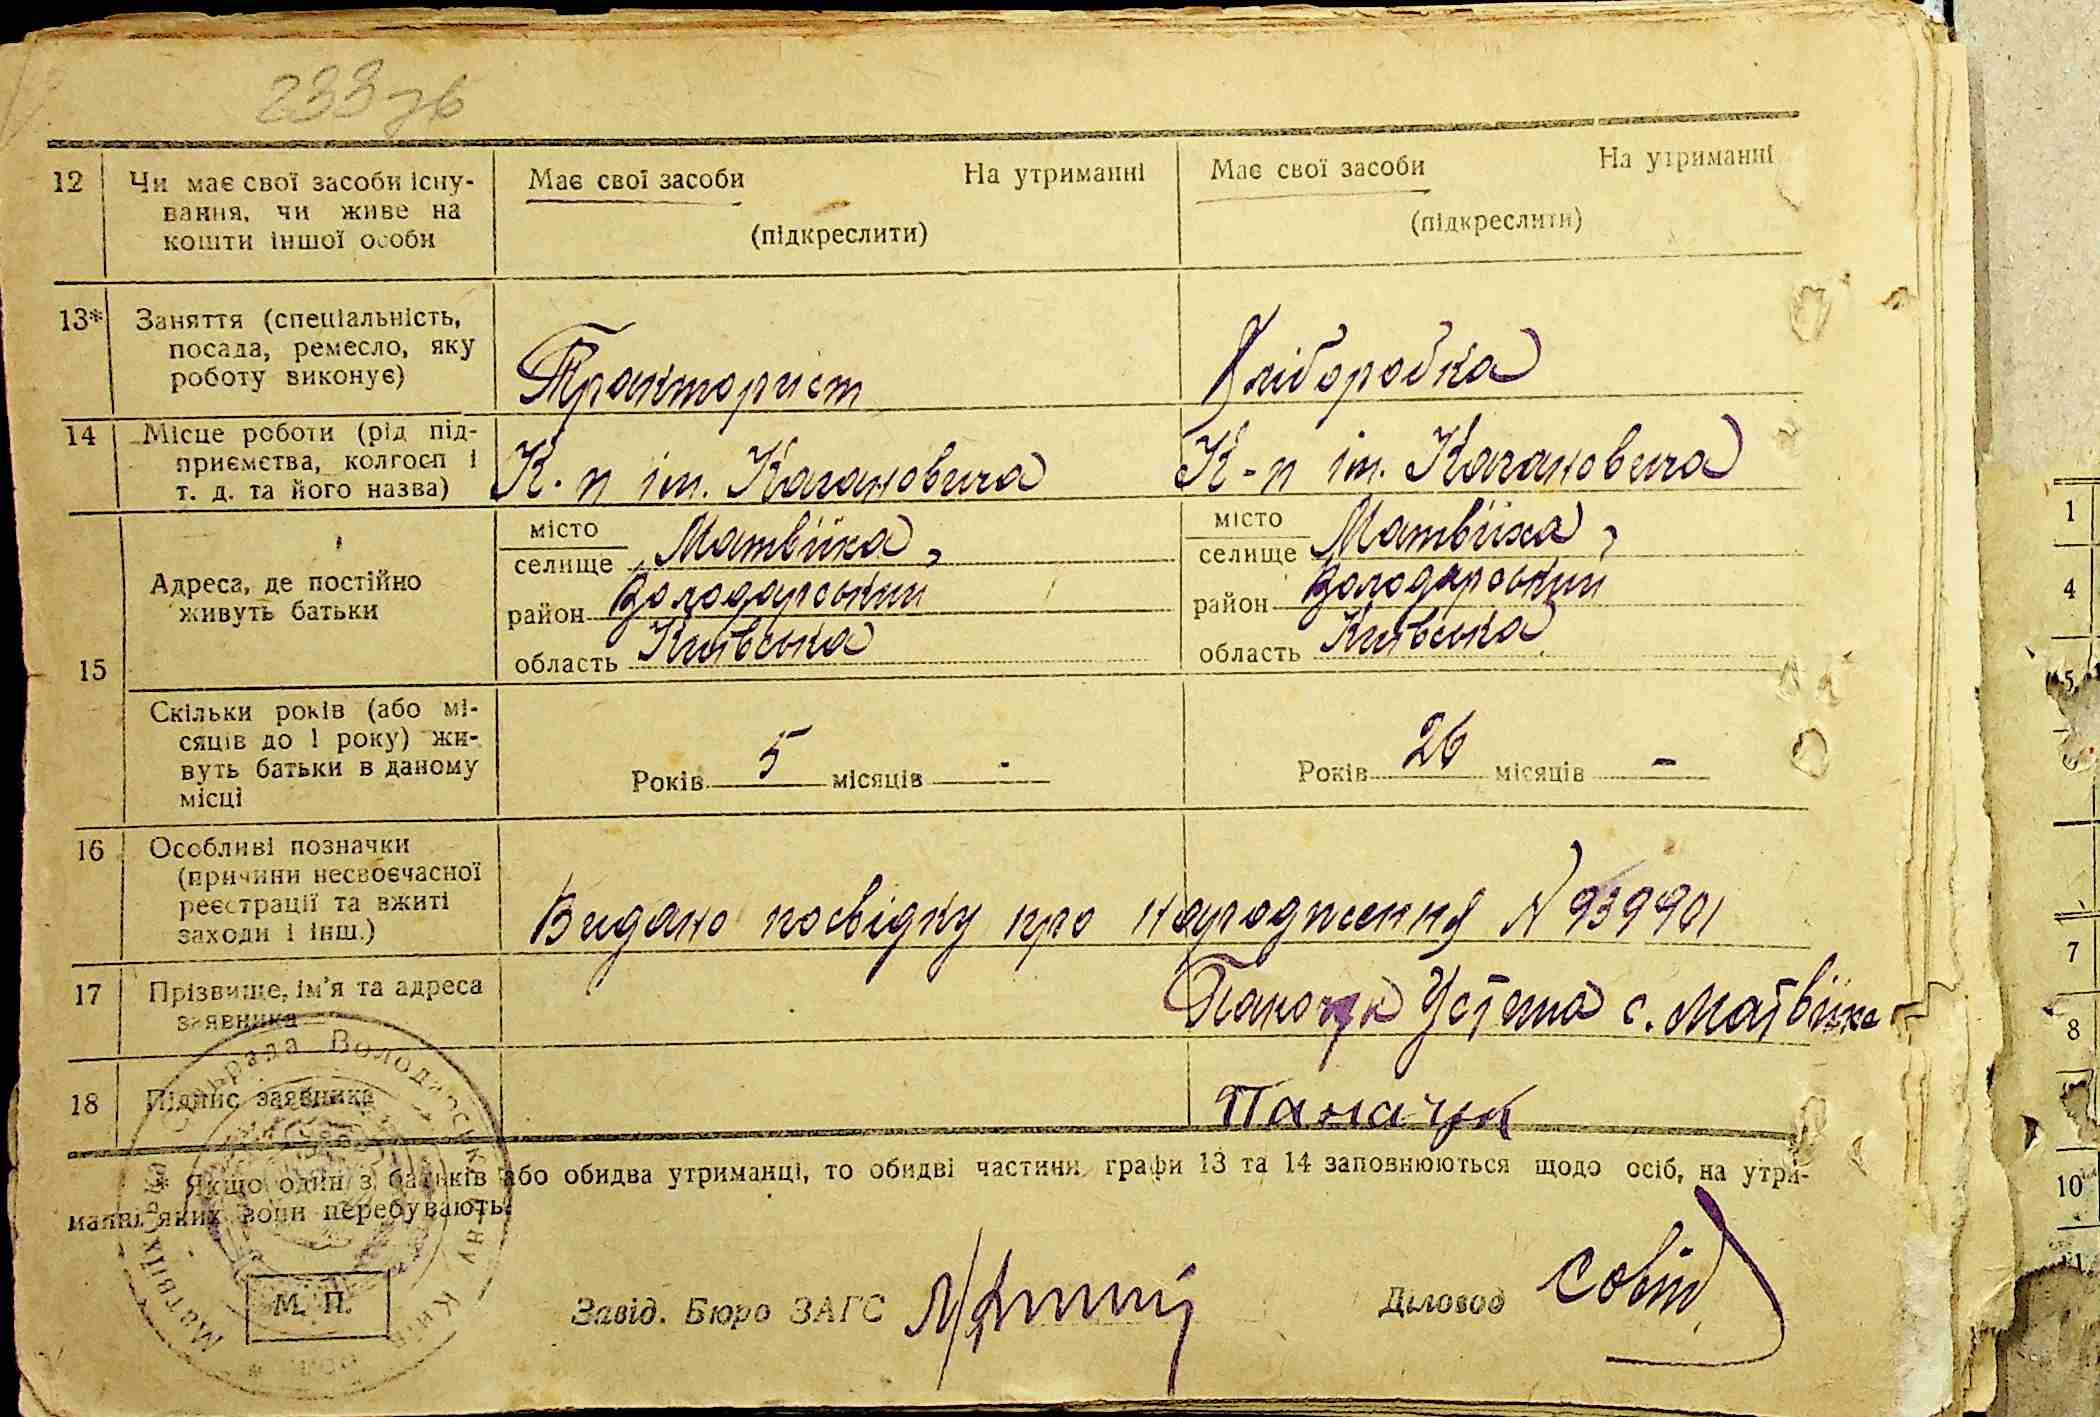 233 зв
12 Чи має свої засоби існу- Має свої засоби На утриманні Має свої засоби На утриманні
вання, чи живе на (підкреслити) (підкреслити)
кошти іншої особи
13* Заняття (спеціальність,
посада, ремесло, яку
роботу виконує) Тракторист Хліборобка
14 Місце роботи (рід під-
приємства, колгосп і
т. д. та його назва) К-п ім. Кагановича К-п ім. Кагановича
15 Адреса, де постійно
живуть батьки
місто місто
селище Матвіїха, селище Матвіїха,
район Володарський район Володарський
область Київська область Київська
Скільки років (або мі-
сяців до 1 року) жи-
вуть батьки в даному
місці Років 5 місяців - Років 26 місяців -
16 Особливі позначки
(причини несвоєчасної
реєстрації та вжиті
заходи і інш.) Видано посвідку про народження N 939901
17 Прізвище, ім'я та адреса
заявника Паначук Устина с. Матвіїха
18 Підпис заявника Паначук
* Якщо один з батьків або обидва утриманці, то обидві частини графи 13 та 14 заповнюються щодо осіб, на утри-
манні яких вони перебувають.
Матвіїхська сільрада Володарськ
М. П.
Завід. Бюро ЗАГС Діловод
1
4
5
7
8
10
11